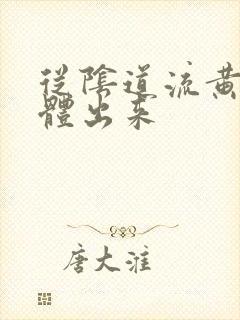 從陰道流黃
體出來
唐大淮